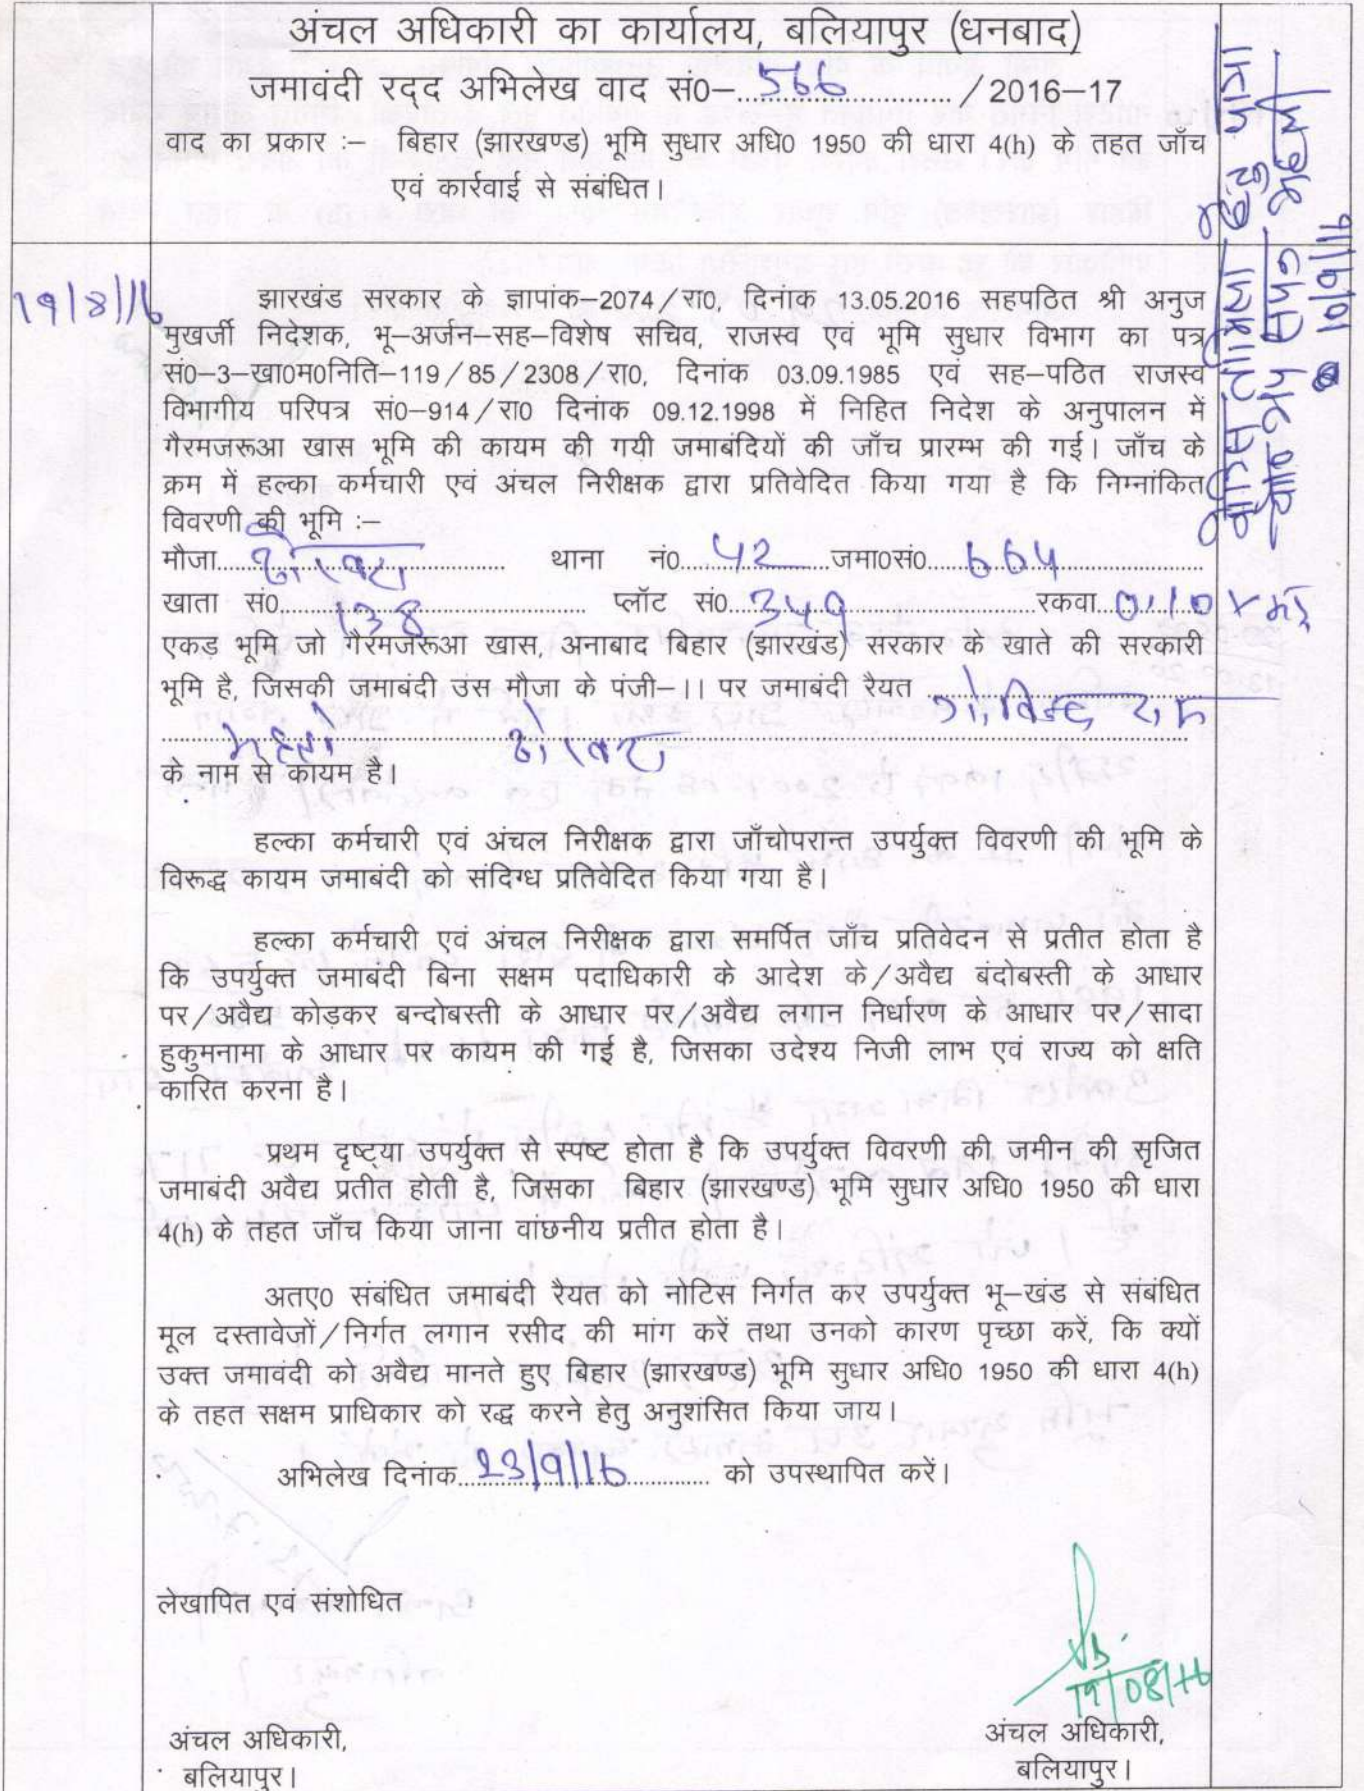 अंचल अधिकारी का कार्यालय, बलियापुर (धनबाद)
जमावंदी रद्द अभिलेख वाद सं0–...566.../2016–17
वाद का प्रकार :– बिहार (झारखण्ड) भूमि सुधार अधि0 1950 की धारा 4(h) के तहत जाँच
एवं कार्रवाई से संबंधित।
19/8/16
झारखंड सरकार के ज्ञापांक–2074/रा0, दिनांक 13.05.2016 सहपठित श्री अनुज
मुखर्जी निदेशक, भू–अर्जन–सह–विशेष सचिव, राजस्व एवं भूमि सुधार विभाग का पत्र
सं0–3–खा0म0निति–119/85/2308/रा0, दिनांक 03.09.1985 एवं सह–पठित राजस्व
विभागीय परिपत्र सं0–914/रा0 दिनांक 09.12.1998 में निहित निदेश के अनुपालन में
गैरमजरूआ खास भूमि की कायम की गयी जमाबंदियों की जाँच प्रारम्भ की गई। जाँच के
क्रम में हल्का कर्मचारी एवं अंचल निरीक्षक द्वारा प्रतिवेदित किया गया है कि निम्नांकित
विवरणी की भूमि :–
मौजा... थाना नं0...42...जमा0सं0...664
खाता सं0...138... प्लॉट सं0...349...रकवा...0.10
एकड़ भूमि जो गैरमजरूआ खास, अनाबाद बिहार (झारखंड) सरकार के खाते की सरकारी
भूमि है, जिसकी जमाबंदी उस मौजा के पंजी–।। पर जमाबंदी रैयत ...गोविन्द राम
महतो
के नाम से कायम है।
हल्का कर्मचारी एवं अंचल निरीक्षक द्वारा जाँचोपरान्त उपर्युक्त विवरणी की भूमि के
विरूद्ध कायम जमाबंदी को संदिग्ध प्रतिवेदित किया गया है।
हल्का कर्मचारी एवं अंचल निरीक्षक द्वारा समर्पित जाँच प्रतिवेदन से प्रतीत होता है
कि उपर्युक्त जमाबंदी बिना सक्षम पदाधिकारी के आदेश के/अवैद्य बंदोबस्ती के आधार
पर/अवैद्य कोड़कर बन्दोबस्ती के आधार पर/अवैद्य लगान निर्धारण के आधार पर/सादा
हुकुमनामा के आधार पर कायम की गई है, जिसका उदेश्य निजी लाभ एवं राज्य को क्षति
कारित करना है।
प्रथम दृष्ट्या उपर्युक्त से स्पष्ट होता है कि उपर्युक्त विवरणी की जमीन की सृजित
जमाबंदी अवैद्य प्रतीत होती है, जिसका बिहार (झारखण्ड) भूमि सुधार अधि0 1950 की धारा
4(h) के तहत जाँच किया जाना वांछनीय प्रतीत होता है।
अतए0 संबंधित जमाबंदी रैयत को नोटिस निर्गत कर उपर्युक्त भू–खंड से संबंधित
मूल दस्तावेजों/निर्गत लगान रसीद की मांग करें तथा उनको कारण पृच्छा करें, कि क्यों
उक्त जमावंदी को अवैद्य मानते हुए बिहार (झारखण्ड) भूमि सुधार अधि0 1950 की धारा 4(h)
के तहत सक्षम प्राधिकार को रद्ध करने हेतु अनुशंसित किया जाय।
अभिलेख दिनांक...23/9/16... को उपस्थापित करें।
लेखापित एवं संशोधित
19/08/16
अंचल अधिकारी,
बलियापुर।
अंचल अधिकारी,
बलियापुर।
10/9/16